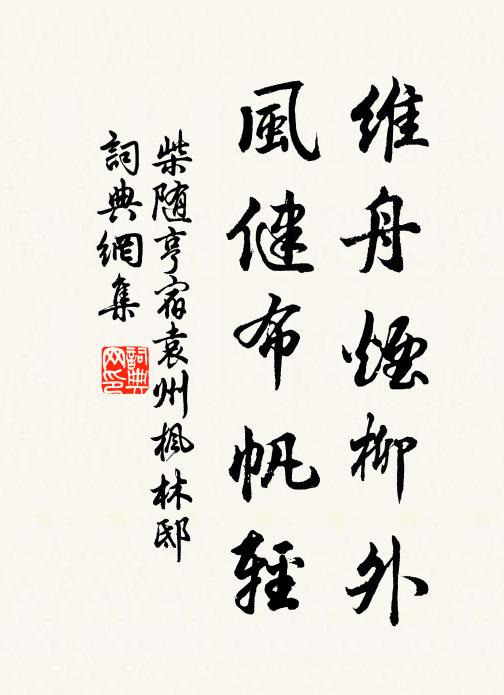 維舟煙柳外
風健布帆輕
柴随亨宿袁州楓林邸
詞典網集
詞典
网印